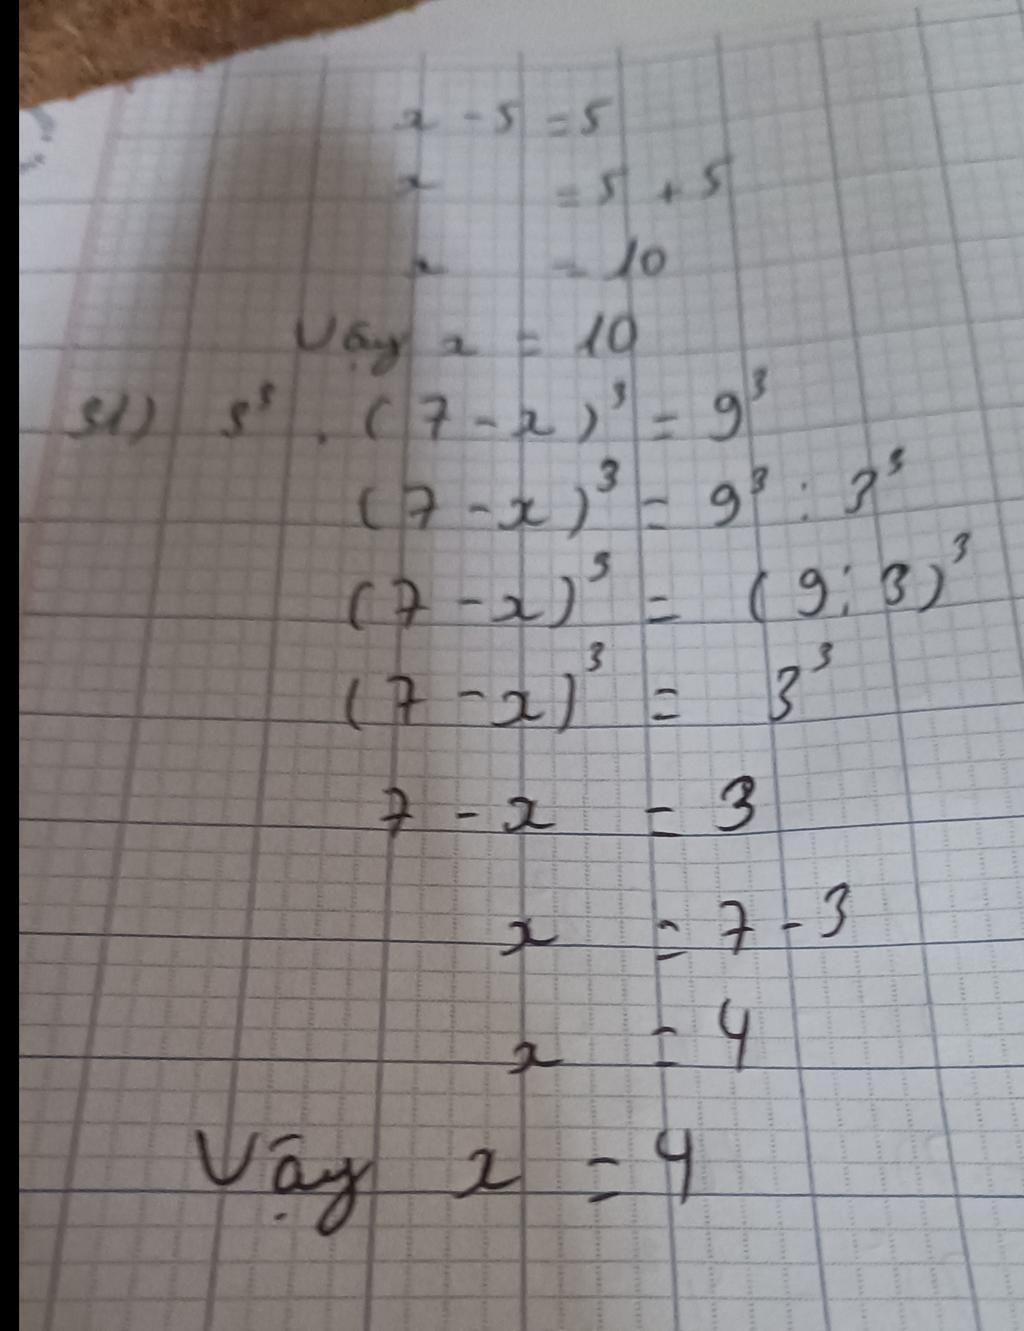 x - 5 = 5
x = 5 + 5
x = 10
Vậy x = 10
31) 3³ . (7 - x)³ = 9³
(7 - x)³ = 9³ : 3³
(7 - x)³ = (9 : 3)³
(7 - x)³ = 3³
7 - x = 3
x = 7 - 3
x = 4
Vậy x = 4